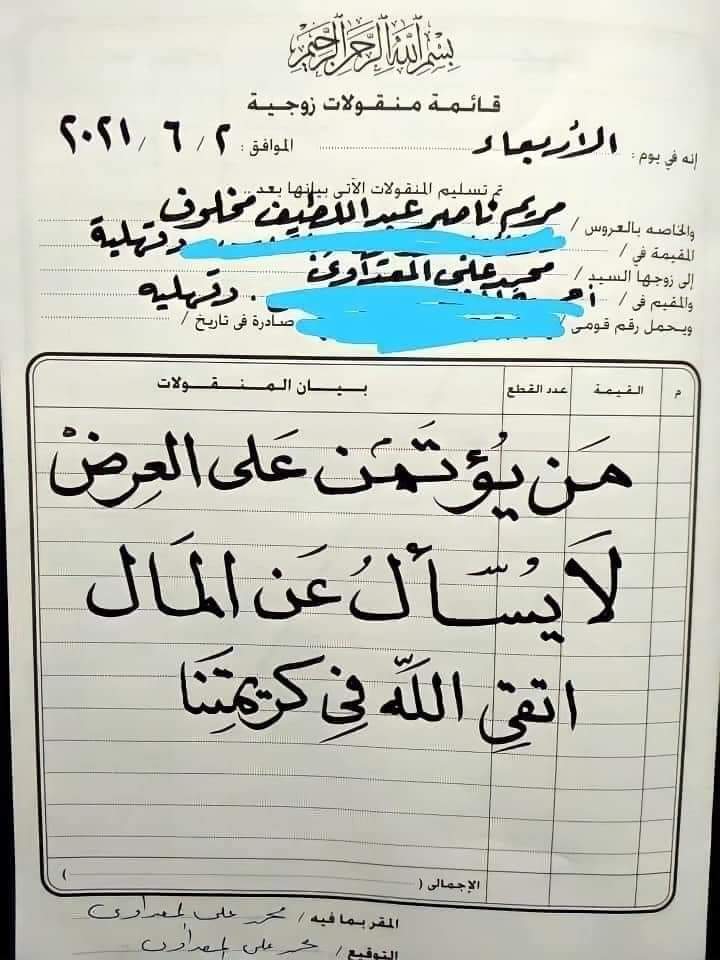 بسم الله الرحمن الرحيم
قائمة منقولات زوجية
إنه في يوم : الأربعاء الموافق : ٢ / ٦ / ٢٠٢١
تم تسليم المنقولات الآتى بيانها بعد ..
والخاصه بالعروس / مريم ناصر عبد اللطيف مخلوف
المقيمة في / دقهلية
إلى زوجها السيد / محمد على المعداوى
والمقيم فى / دقهليه
ويحمل رقم قومى / صادرة فى تاريخ /
م القيمة عدد القطع بيان المنقولات
مَن يُؤتَمَن عَلى العِرضْ
لَا يُسّأَلُ عَن المَال
اتقِي اللَّه فِي كريمِتِنَا
الإجمالى ( )
المقر بما فيه / محمد على المعداوى
التوقيع / محمد على المعداوى